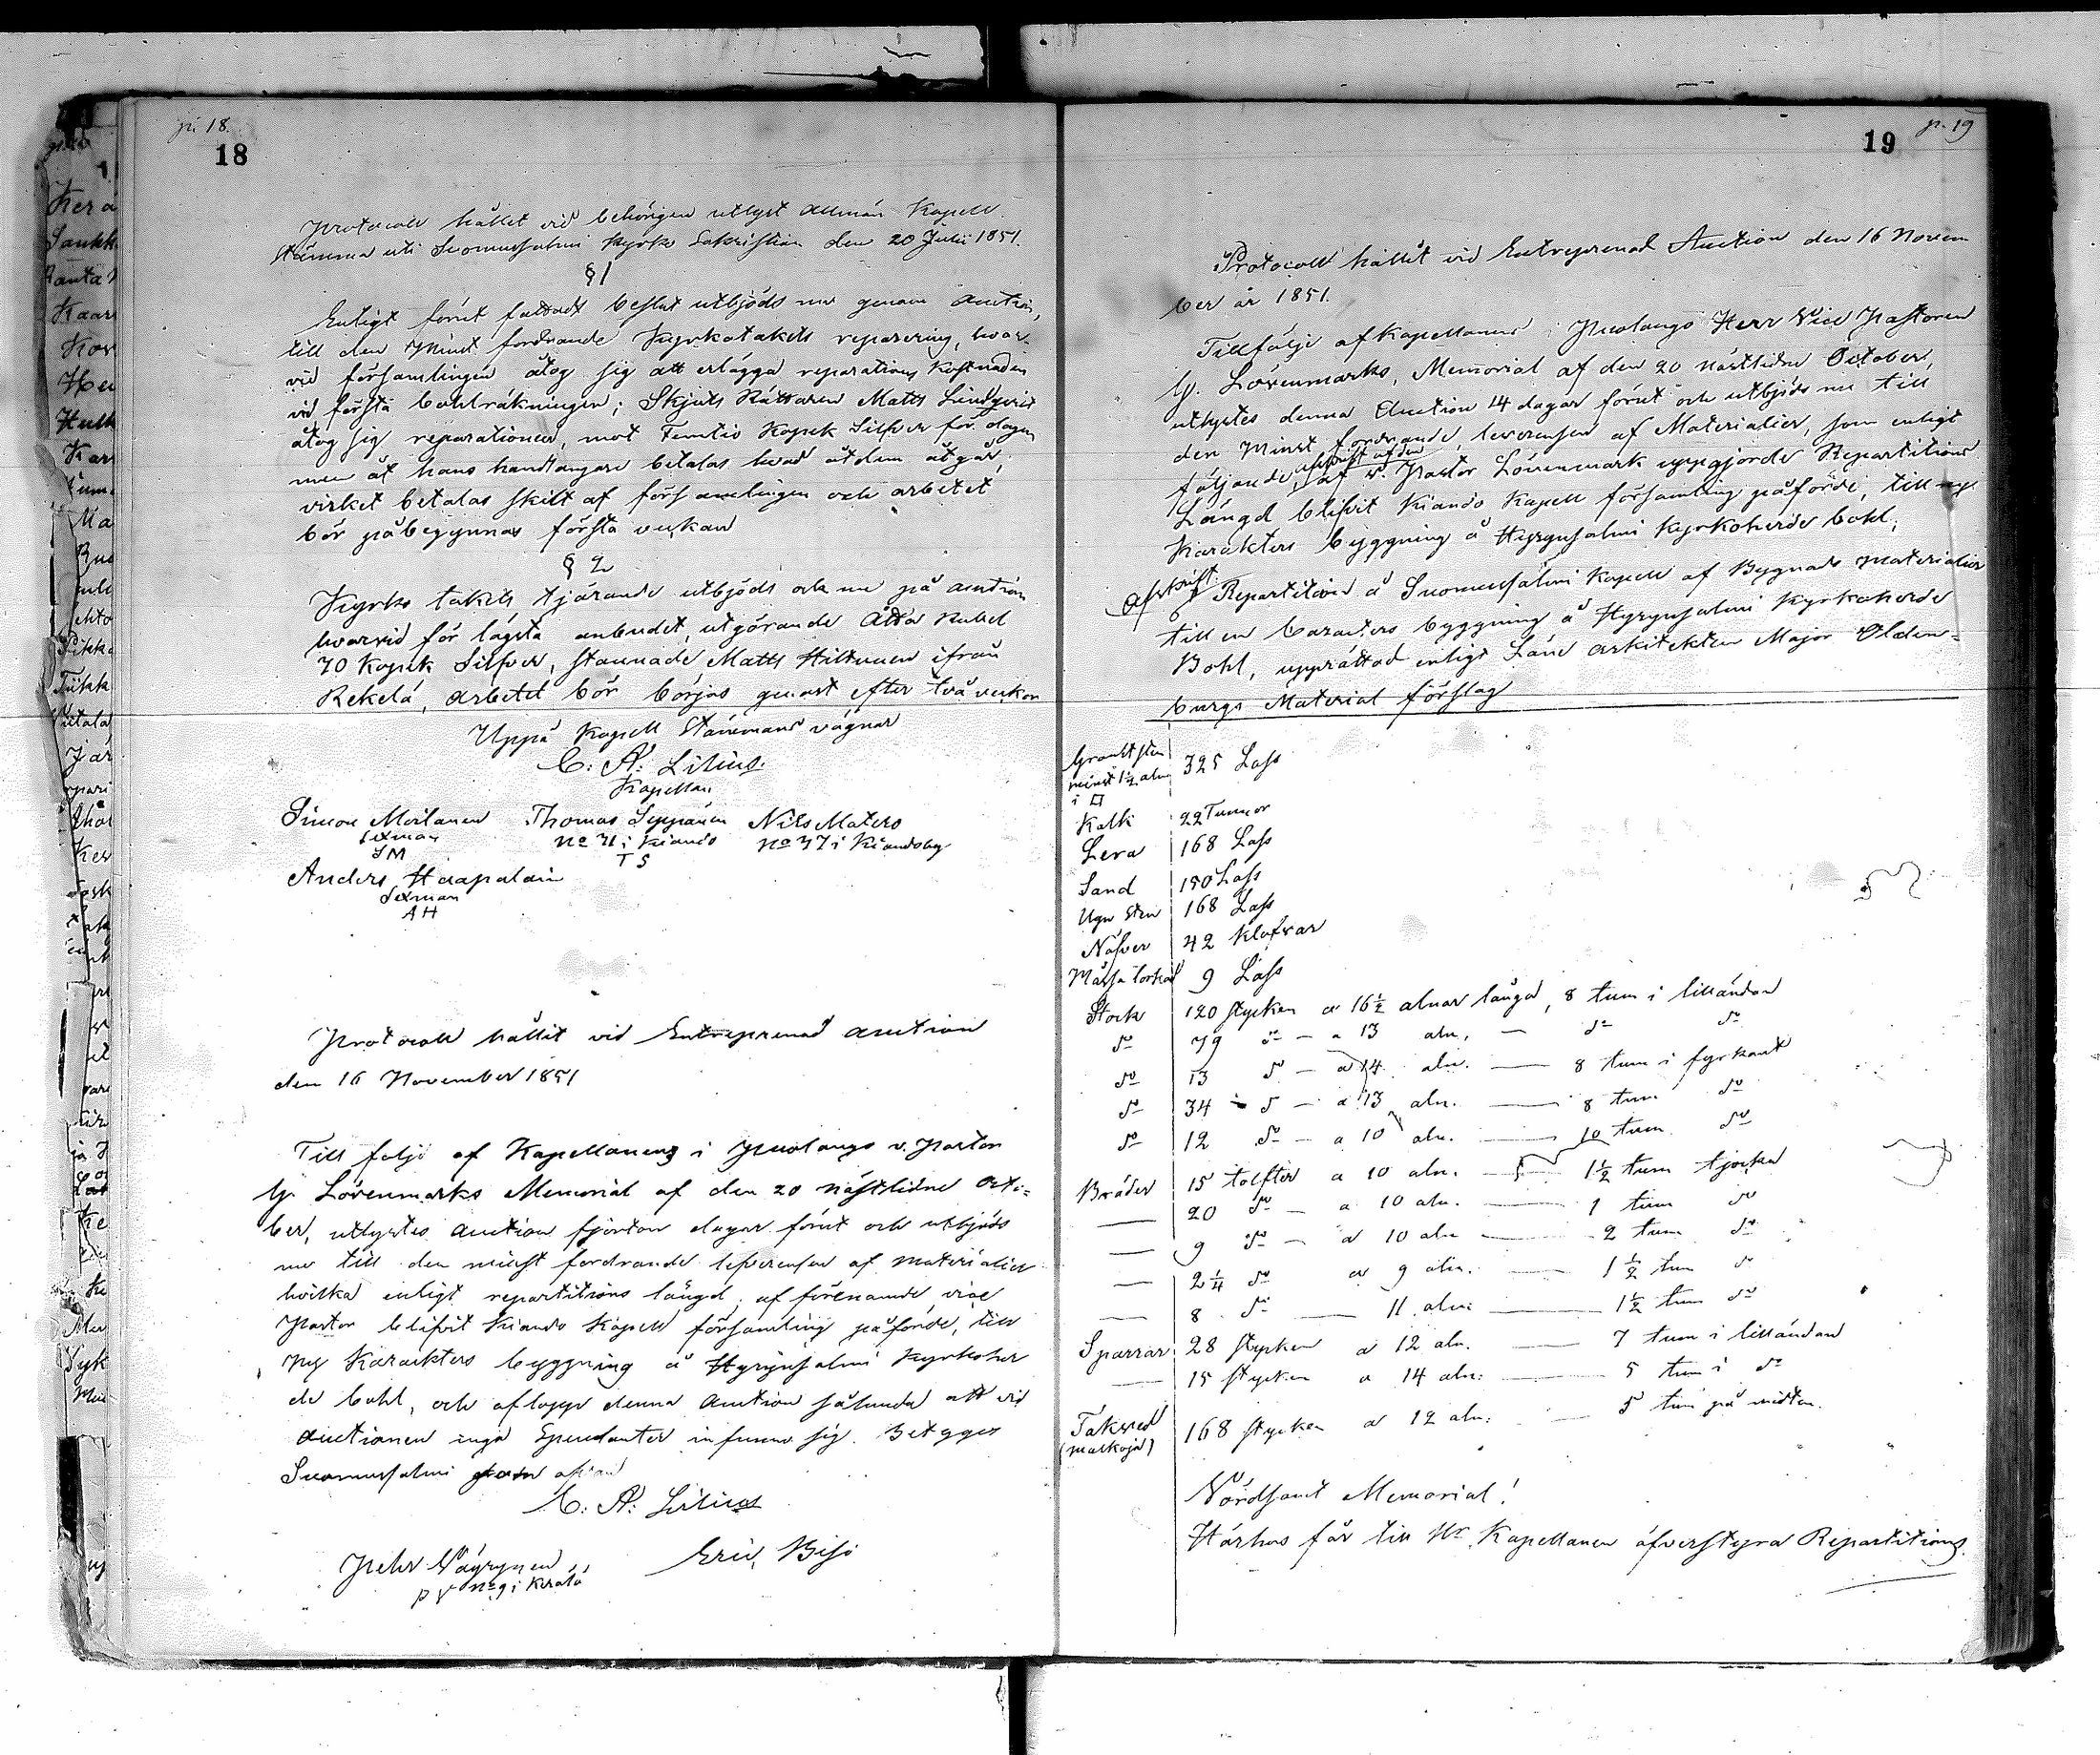 p. 18.
18
Protocoll hållit vid behörigen utlyst allmän Kapell
stämma uti Suomussalmi Kyrko Sakristian den 20 Julii 1851.
§ 1
Enligt förut fattadt beslut utbjöds nu genom auction,
till den Minst fordrande Kyrkotakets reparering, hvar-
vid församlingen åtog sig att erlägga reparations Kostnaden
vid första bohlräkningen; Skjuts Rättaren Matts Lindqvist
åtog sig reparationen, mot Femtio Kopek Silfver för dagen
men åt hans handtangare betalas hvad åt dem åtgår,
virket betalas skilt af församlingen och arbetet
bör påbegynnas första veckan
§ 2
Kyrko takets tjärande utbjöds och nu på auction
hvarvid för lägsta anbudet, utgörande Åtta Rubel
70 Kopek Silfver, stannade Matts Hiltunen ifrån
Rekelä, arbetet bör börjas genast efter två veckor
Uppå Kapell Stämmans vägnar
C. A. Lilius.
Kapellan
Simon Moilanen Thomas Seppänen Nils Matero
sexman No 71 i Kiando No 37 i Kiandoby
SM T S
Anders Haapalain
Sexman
AH
Protocoll hållit vid Entreprenad auction
den 16 November 1851
Till följe af Kapellanens i Puolango v. Pastor
G. Lövenmarks Memorial af den 20 nästlidne Octo-
ber, utlystes auction fjorton dagar förut och utbjöds
nu till den minst fordrande leverensen af materialier
hvilka enligt repartitions längd af förenamde vice
Pastor blifvit Kiando Kapell församling påförde, till
Ny Karakters byggning å Hyrynsalmi Kyrkoher
de bohl, och aflopp denna auction sålunda att vid
auctionen inga Speculanter infunno sig. Betygar
Suomussalmi
C. A. Lilius
Pehr Väyrynen Eric Bisi
No 9 i Kerälä
p. 19
19
Protocoll hållit vid Entreprenad Auction den 16 Novem
ber år 1851.
Till följe af Kapellanens i Puolango Herr Vice Pastoren
G. Lövenmarks, Memorial af den 20 nästlidne October,
utlystes denna Auction 14 dagar förut och utbjöds nu till
den Minst fordrande, leverensen af Materialier, som enligt
följande, afskrift af den af v. Pastor Lövenmark uppgjorde Repartitions
Längd blifvit Kiando Kapell församling påförde, till ny
Karakters byggning å Hyrynsalmi Kyrkoherde bohl;
Afskrift. Repartition å Suomussalmi Kapell af Bygnads Materialier
till en Caracters byggning å Hyrynsalmi Kyrkoherde
Bohl, upprättad enligt Läns arkitekten Major Olden-
burgs Material förslag
Gråkst sten
minst 1½ aln 325 Lass
i □
Kalk 22 Tunnor
Lera 168 Lass
Sand 150 Lass
Ugn Sten 168 Lass
Näfver 42 Klafvar
Måssa torkad 9 Lass
Stock 120 stycken a 16½ alnar långa, 8 tum i lilländan
do 79 do - a 13 aln, — do do
do 13 do - a 14 aln. — 8 tum i fyrkant
do 34 do - a 13 aln. — 8 tum do
do 12 do - a 10 aln. — 10 tum do
Bräder 15 tolfter a 10 aln. — 1½ tum tjocka
— 20 do - a 10 aln. — 1 tum do
— 9 do - a 10 aln — 2 tum do
— 2¼ do a 9 aln. — 1½ tum do
— 8 do — 11 aln: — 1½ tum do
Sparrar 28 stycken a 12 aln. — 7 tum i lilländan
— 15 stycken a 14 aln: — 5 tum i do
Takved 168 stycken a 12 aln: — 5 tum på midten.
(malkoja)
Vördsamt Memorial!
Härhos får till Hr Kapellanen öfverstyra Repartitions